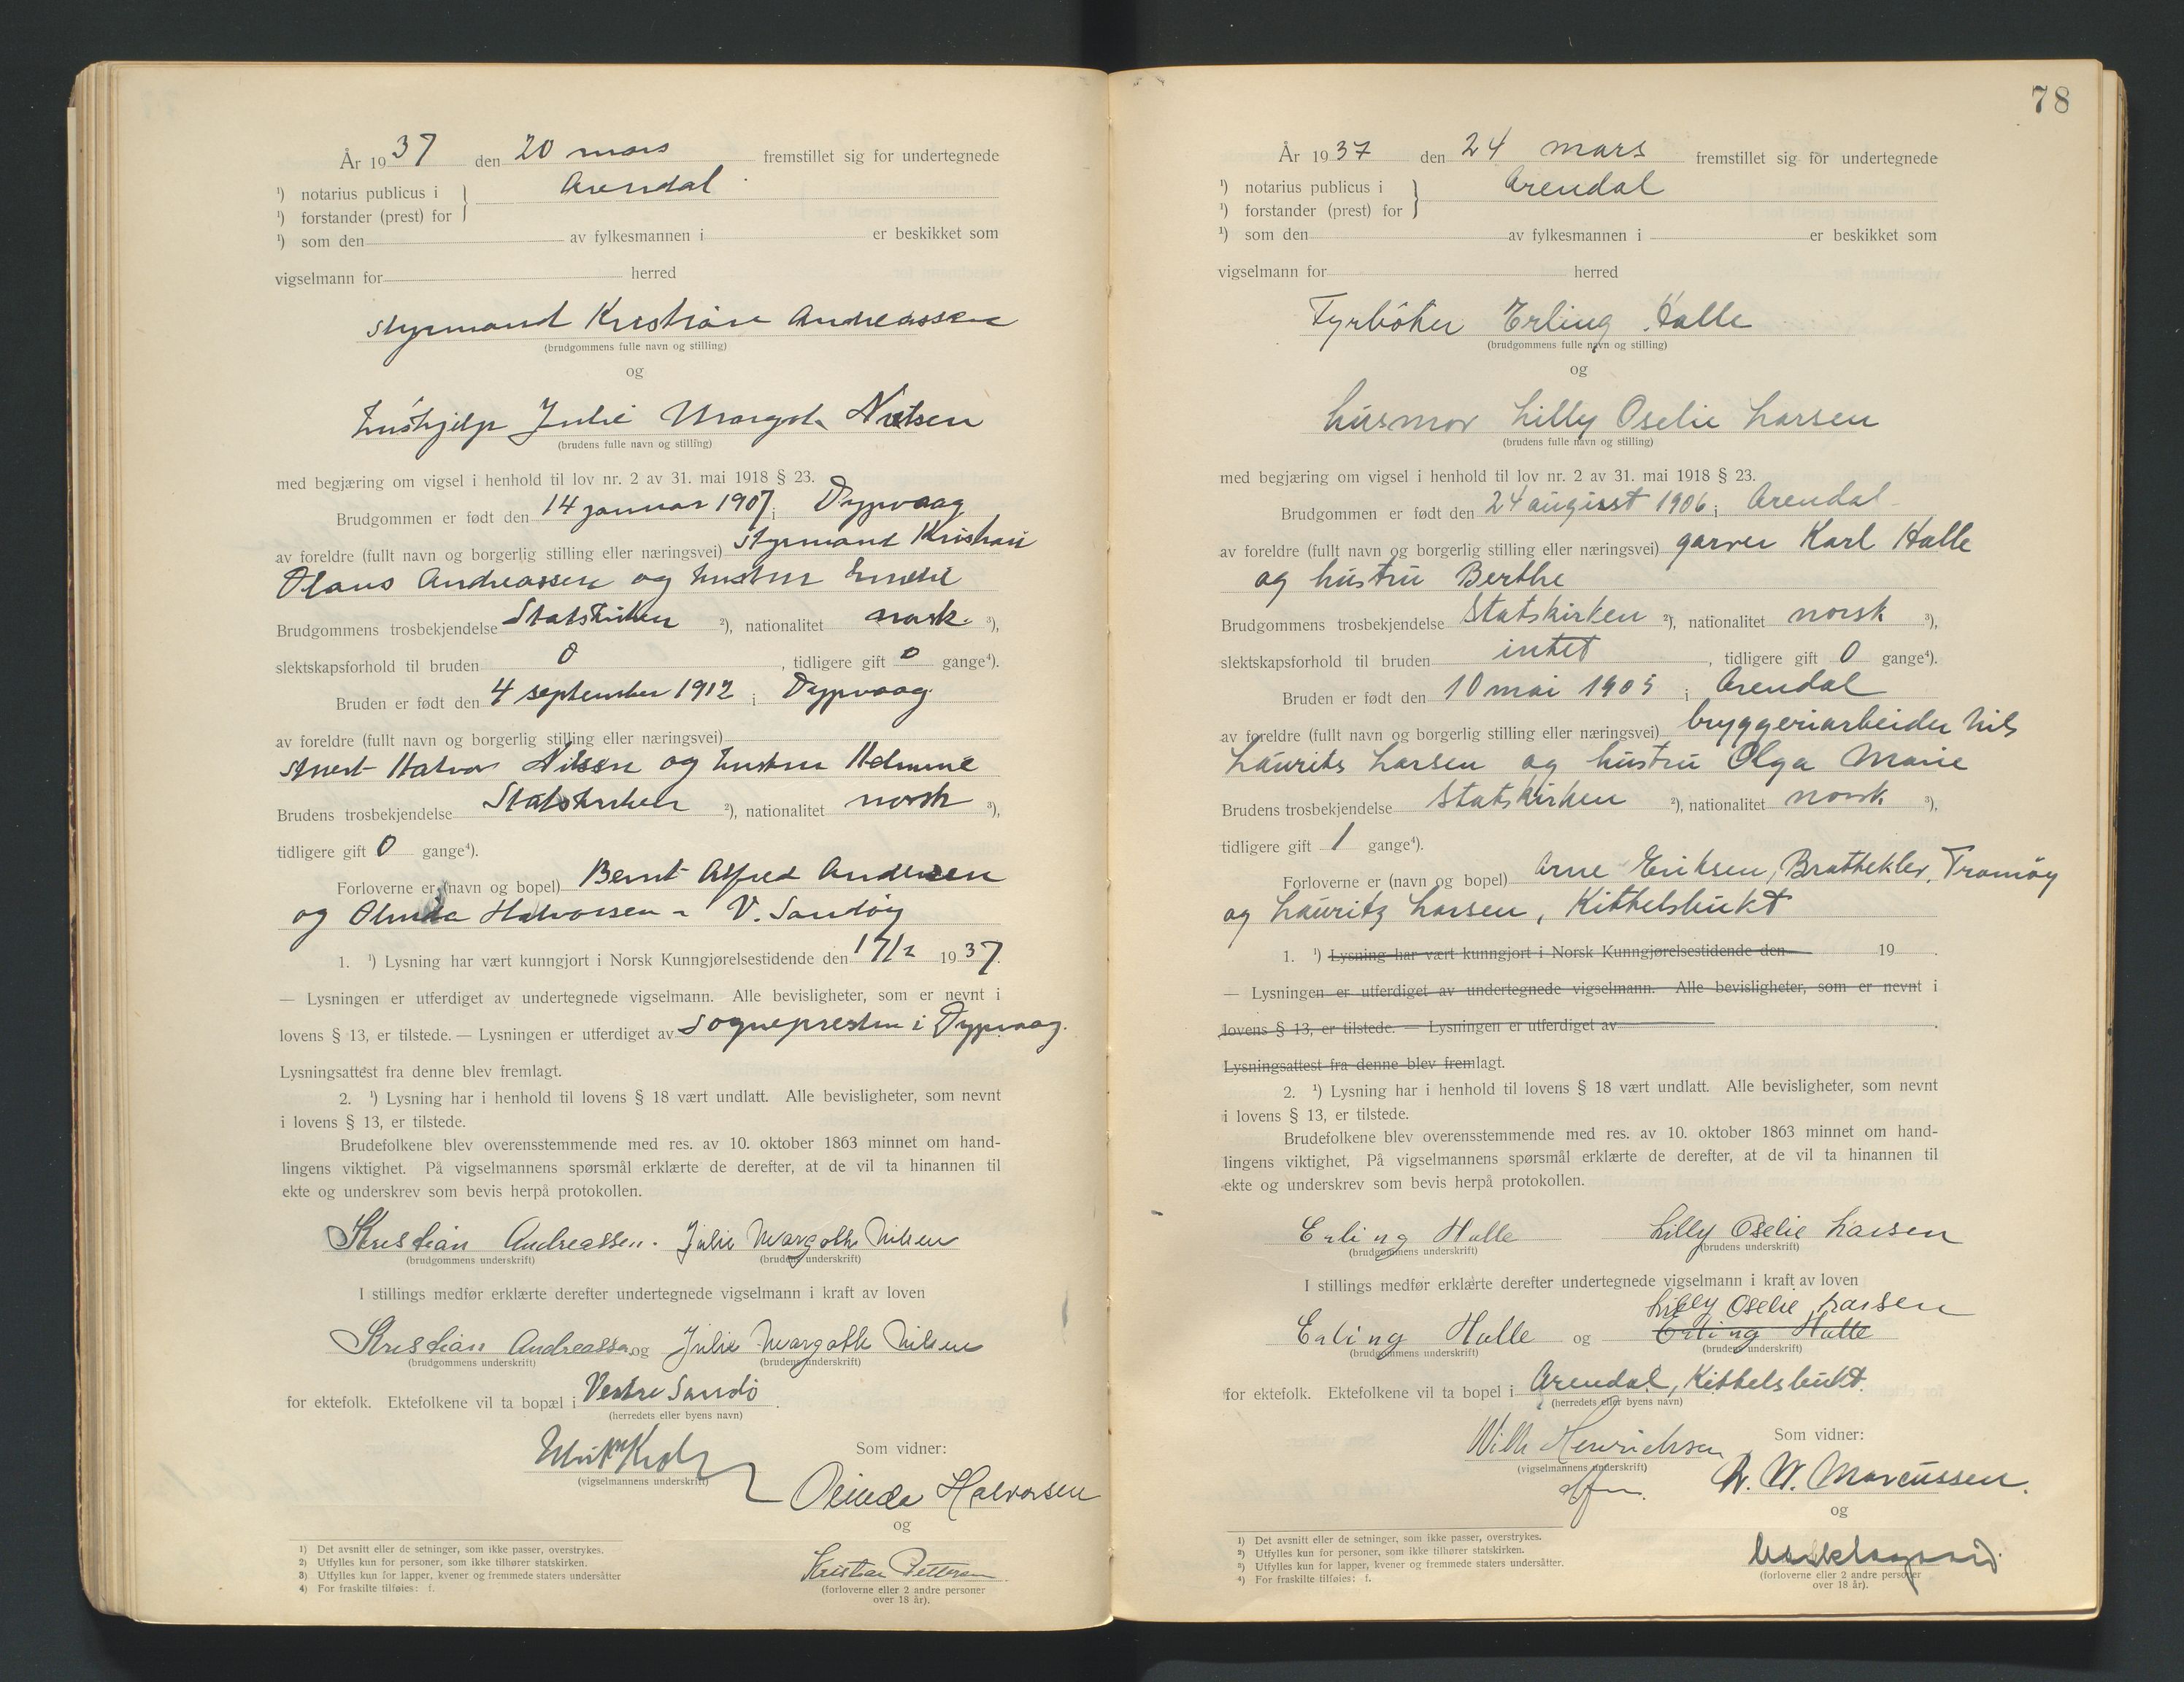 År 1937 den 20 mars fremstillet sig for undertegnede
¹) notarius publicus i } Arendal
¹) forstander (prest) for
¹) som den av fylkesmannen i er beskikket som
vigselmann for herred
styrmand Kristian Andreassen
(brudgommens fulle navn og stilling)
og
hushjelp Julie Margot Nilsen
(brudens fulle navn og stilling)
med begjæring om vigsel i henhold til lov nr. 2 av 31. mai 1918 § 23.
Brudgommen er født den 14 januar 1907 i Dypvaag
av foreldre (fullt navn og borgerlig stilling eller næringsvei) Styrmand Kristian
Olaus Andreassen og hustru
Brudgommens trosbekjendelse Statskirken ²), nationalitet norsk ³),
slektskapsforhold til bruden 0, tidligere gift 0 gange⁴).
Bruden er født den 4 september 1912 i Dypvaag
av foreldre (fullt navn og borgerlig stilling eller næringsvei)
Halvor Nilsen og hustru Helmine
Brudens trosbekjendelse Statskirken ²), nationalitet norsk ³),
tidligere gift 0 gange⁴).
Forloverne er (navn og bopel) Bernt Alfred Andersen
og Olinda Halvorsen - V. Sandøy
1. ¹) Lysning har vært kunngjort i Norsk Kunngjørelsestidende den 17/2 1937.
— Lysningen er utferdiget av undertegnede vigselmann. Alle bevisligheter, som er nevnt i
lovens § 13, er tilstede. — Lysningen er utferdiget av Sognepresten i Dypvaag.
Lysningsattest fra denne blev fremlagt.
2. ¹) Lysning har i henhold til lovens § 18 vært undlatt. Alle bevisligheter, som nevnt
i lovens § 13, er tilstede.
Brudefolkene blev overensstemmende med res. av 10. oktober 1863 minnet om hand-
lingens viktighet. På vigselmannens spørsmål erklærte de derefter, at de vil ta hinannen til
ekte og underskrev som bevis herpå protokollen.
Kristian Andreassen. Julie Margothe Nilsen
(brudgommens underskrift) (brudens underskrift)
I stillings medfør erklærte derefter undertegnede vigselmann i kraft av loven
Kristian Andreassen og Julie Margothe Nilsen
(brudgommens underskrift) (brudens underskrift)
for ektefolk. Ektefolkene vil ta bopæl i Vestre Sandø.
(herredets eller byens navn)
Som vidner:
(vigselmannens underskrift)
Olinda Halvorsen
og
Kristian Pettersen
(forloverne eller 2 andre personer
over 18 år).
1) Det avsnitt eller de setninger, som ikke passer, overstrykes.
2) Utfylles kun for personer, som ikke tilhører statskirken.
3) Utfylles kun for lapper, kvener og fremmede staters undersåtter
4) For fraskilte tilføies: f.
78
År 1937 den 24 mars fremstillet sig for undertegnede
¹) notarius publicus i } Arendal
¹) forstander (prest) for
¹) som den av fylkesmannen i er beskikket som
vigselmann for herred
Fyrbøter Erling Halle
(brudgommens fulle navn og stilling)
og
husmor Lilly Oselie Larsen
(brudens fulle navn og stilling)
med begjæring om vigsel i henhold til lov nr. 2 av 31. mai 1918 § 23.
Brudgommen er født den 24 august 1906 i Arendal
av foreldre (fullt navn og borgerlig stilling eller næringsvei) garver Karl Halle
og hustru Berthe
Brudgommens trosbekjendelse Statskirken ²), nationalitet norsk ³),
slektskapsforhold til bruden intet, tidligere gift 0 gange⁴).
Bruden er født den 10 mai 1905 i Arendal
av foreldre (fullt navn og borgerlig stilling eller næringsvei) bryggeriarbeider Nils
Laurits Larsen og hustru Olga Marie
Brudens trosbekjendelse Statskirken ²), nationalitet norsk ³),
tidligere gift 1 gange⁴).
Forloverne er (navn og bopel) Arne Eriksen, Brattekler, Tromøy
og Lauritz Larsen, Kittelsbukt
1. ¹) Lysning har vært kunngjort i Norsk Kunngjørelsestidende den 19 .
— Lysningen er utferdiget av undertegnede vigselmann. Alle bevisligheter, som er nevnt i
lovens § 13, er tilstede. — Lysningen er utferdiget av .
Lysningsattest fra denne blev fremlagt.
2. ¹) Lysning har i henhold til lovens § 18 vært undlatt. Alle bevisligheter, som nevnt
i lovens § 13, er tilstede.
Brudefolkene blev overensstemmende med res. av 10. oktober 1863 minnet om hand-
lingens viktighet. På vigselmannens spørsmål erklærte de derefter, at de vil ta hinannen til
ekte og underskrev som bevis herpå protokollen.
Erling Halle Lilly Oselie Larsen
(brudgommens underskrift) (brudens underskrift)
I stillings medfør erklærte derefter undertegnede vigselmann i kraft av loven
Lilly Oselie Larsen
Erling Halle og Erling Halle
(brudgommens underskrift) (brudens underskrift)
for ektefolk. Ektefolkene vil ta bopel i Arendal, Kittelsbukt.
(herredets eller byens navn)
Wilh Henrichsen
Som vidner:
(vigselmannens underskrift)
W. Marcussen.
og
(forloverne eller 2 andre personer
over 18 år).
1) Det avsnitt eller de setninger, som ikke passer, overstrykes.
2) Utfylles kun for personer, som ikke tilhører statskirken.
3) Utfylles kun for lapper, kvener og fremmede staters undersåtter.
4) For fraskilte tilføies: f.